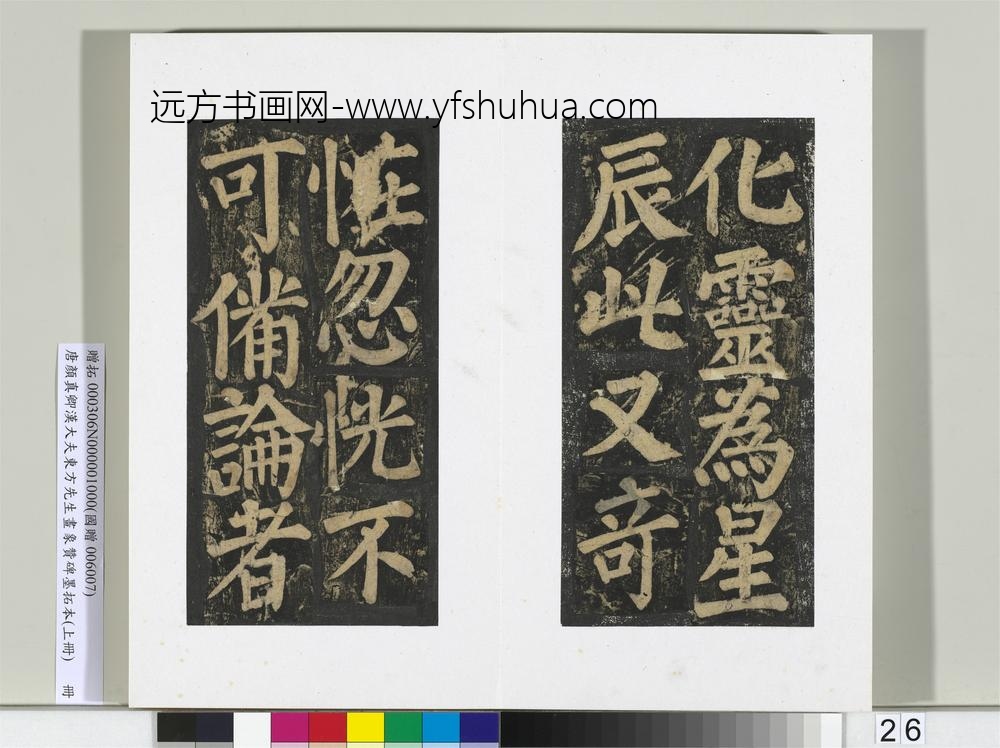 远方书画网-www.yfshuhua.com
化靈為星
辰此又奇
恠忽恍不
可備論者
贈拓 000306N000001000(國贈 006007)
唐顏真卿漢大夫東方先生畫象贊碑墨拓本(上冊) 冊
26